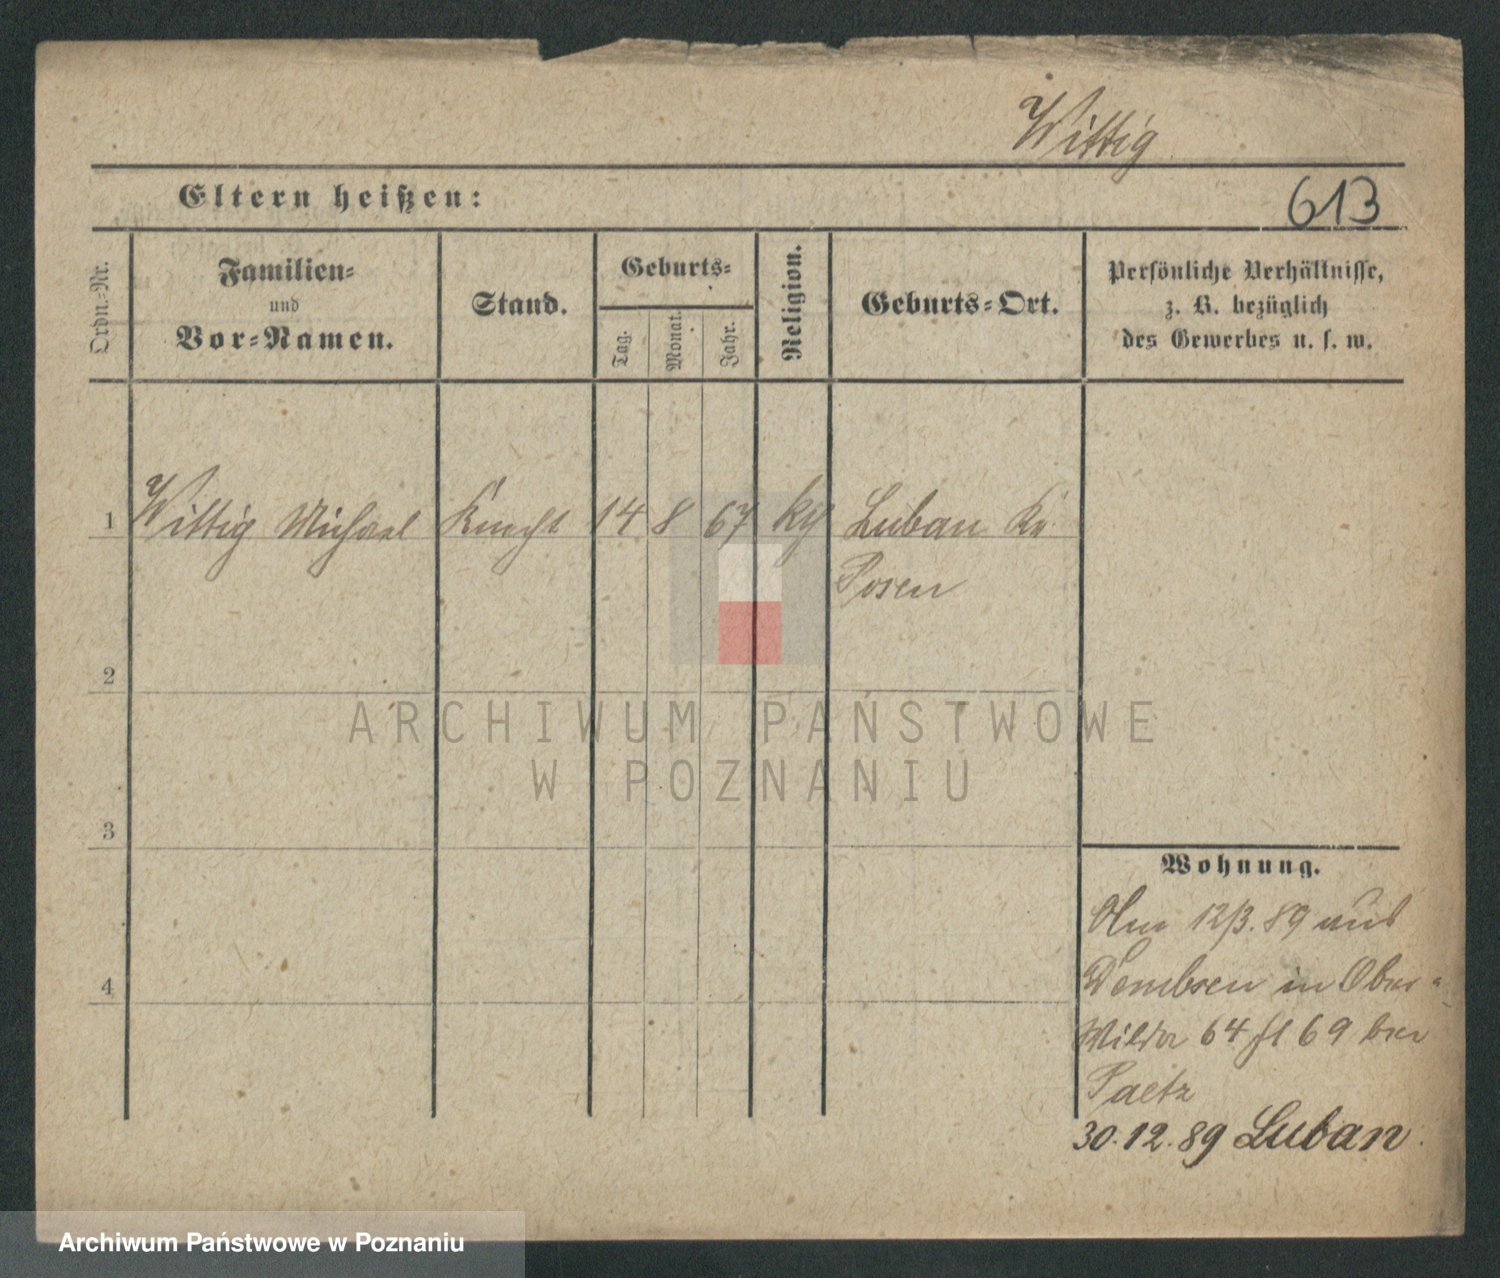 Wittig
Eltern heißen:
613
Ordn.-Nr.
Familien-
und
Vor-Namen.
Stand.
Geburts-
Tag.
Monat.
Jahr.
Religion.
Geburts-Ort.
Persönliche Verhältnisse,
z. B. bezüglich
des Gewerbes u. s. w.
1 Wittig Michael Knecht 14 8 67 kg Luban Kr
Posen
2
3
4
Wohnung.
12/3. 89 aus
Dembsen in Ober-
Wilda 64 69 bei
Paetz
30.12.89 Luban.
ARCHIWUM PAŃSTWOWE
W POZNANIU
Archiwum Państwowe w Poznaniu